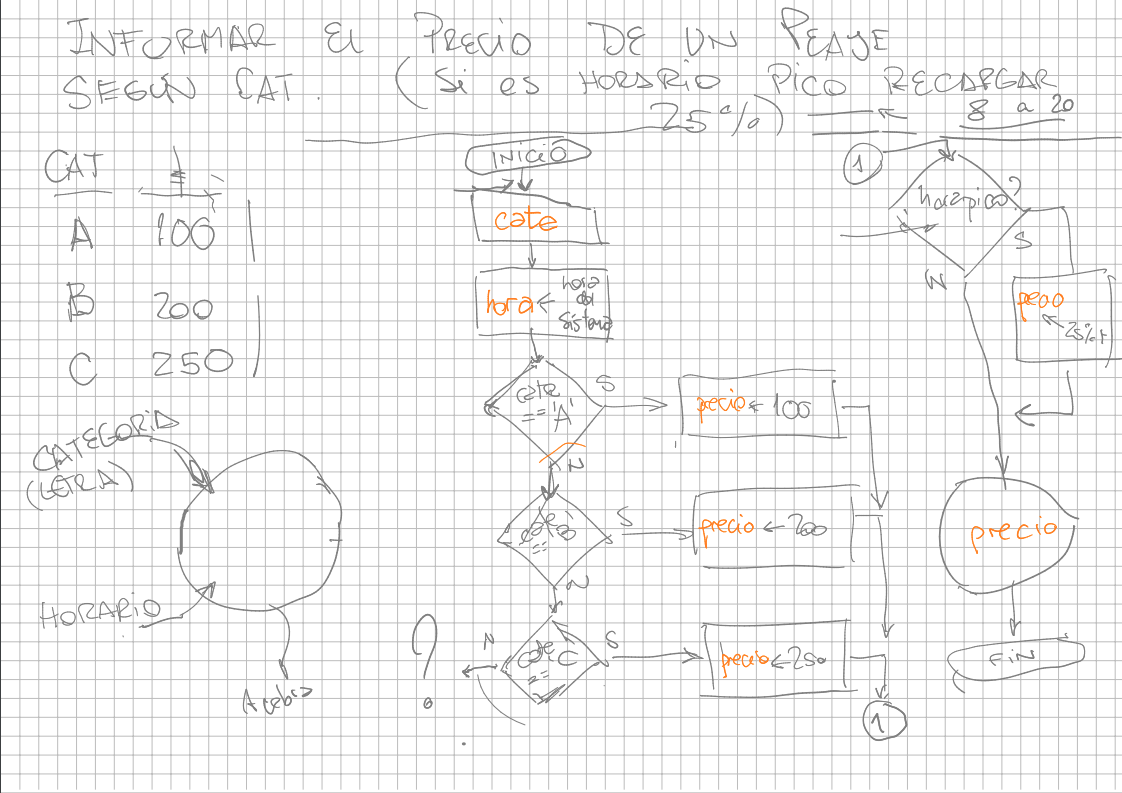 INFORMAR El PRECIO DE UN PEAJE
SEGÚN CAT. (Si es HORARIO PICO RECARGAR
25%)
8 a 20
CAT $
A 100
B 200
C 250
CATEGORIA
(LETRA)
HORARIO
INICIO
cate
hora ← hora
del
sistema
cate
=='A'
S
N
precio ← 100
cate
==
B
S
N
precio ← 200
cate
==
C
S
N
?
precio ← 250
1
1
hora pico?
S
N
← 25%
precio
FIN